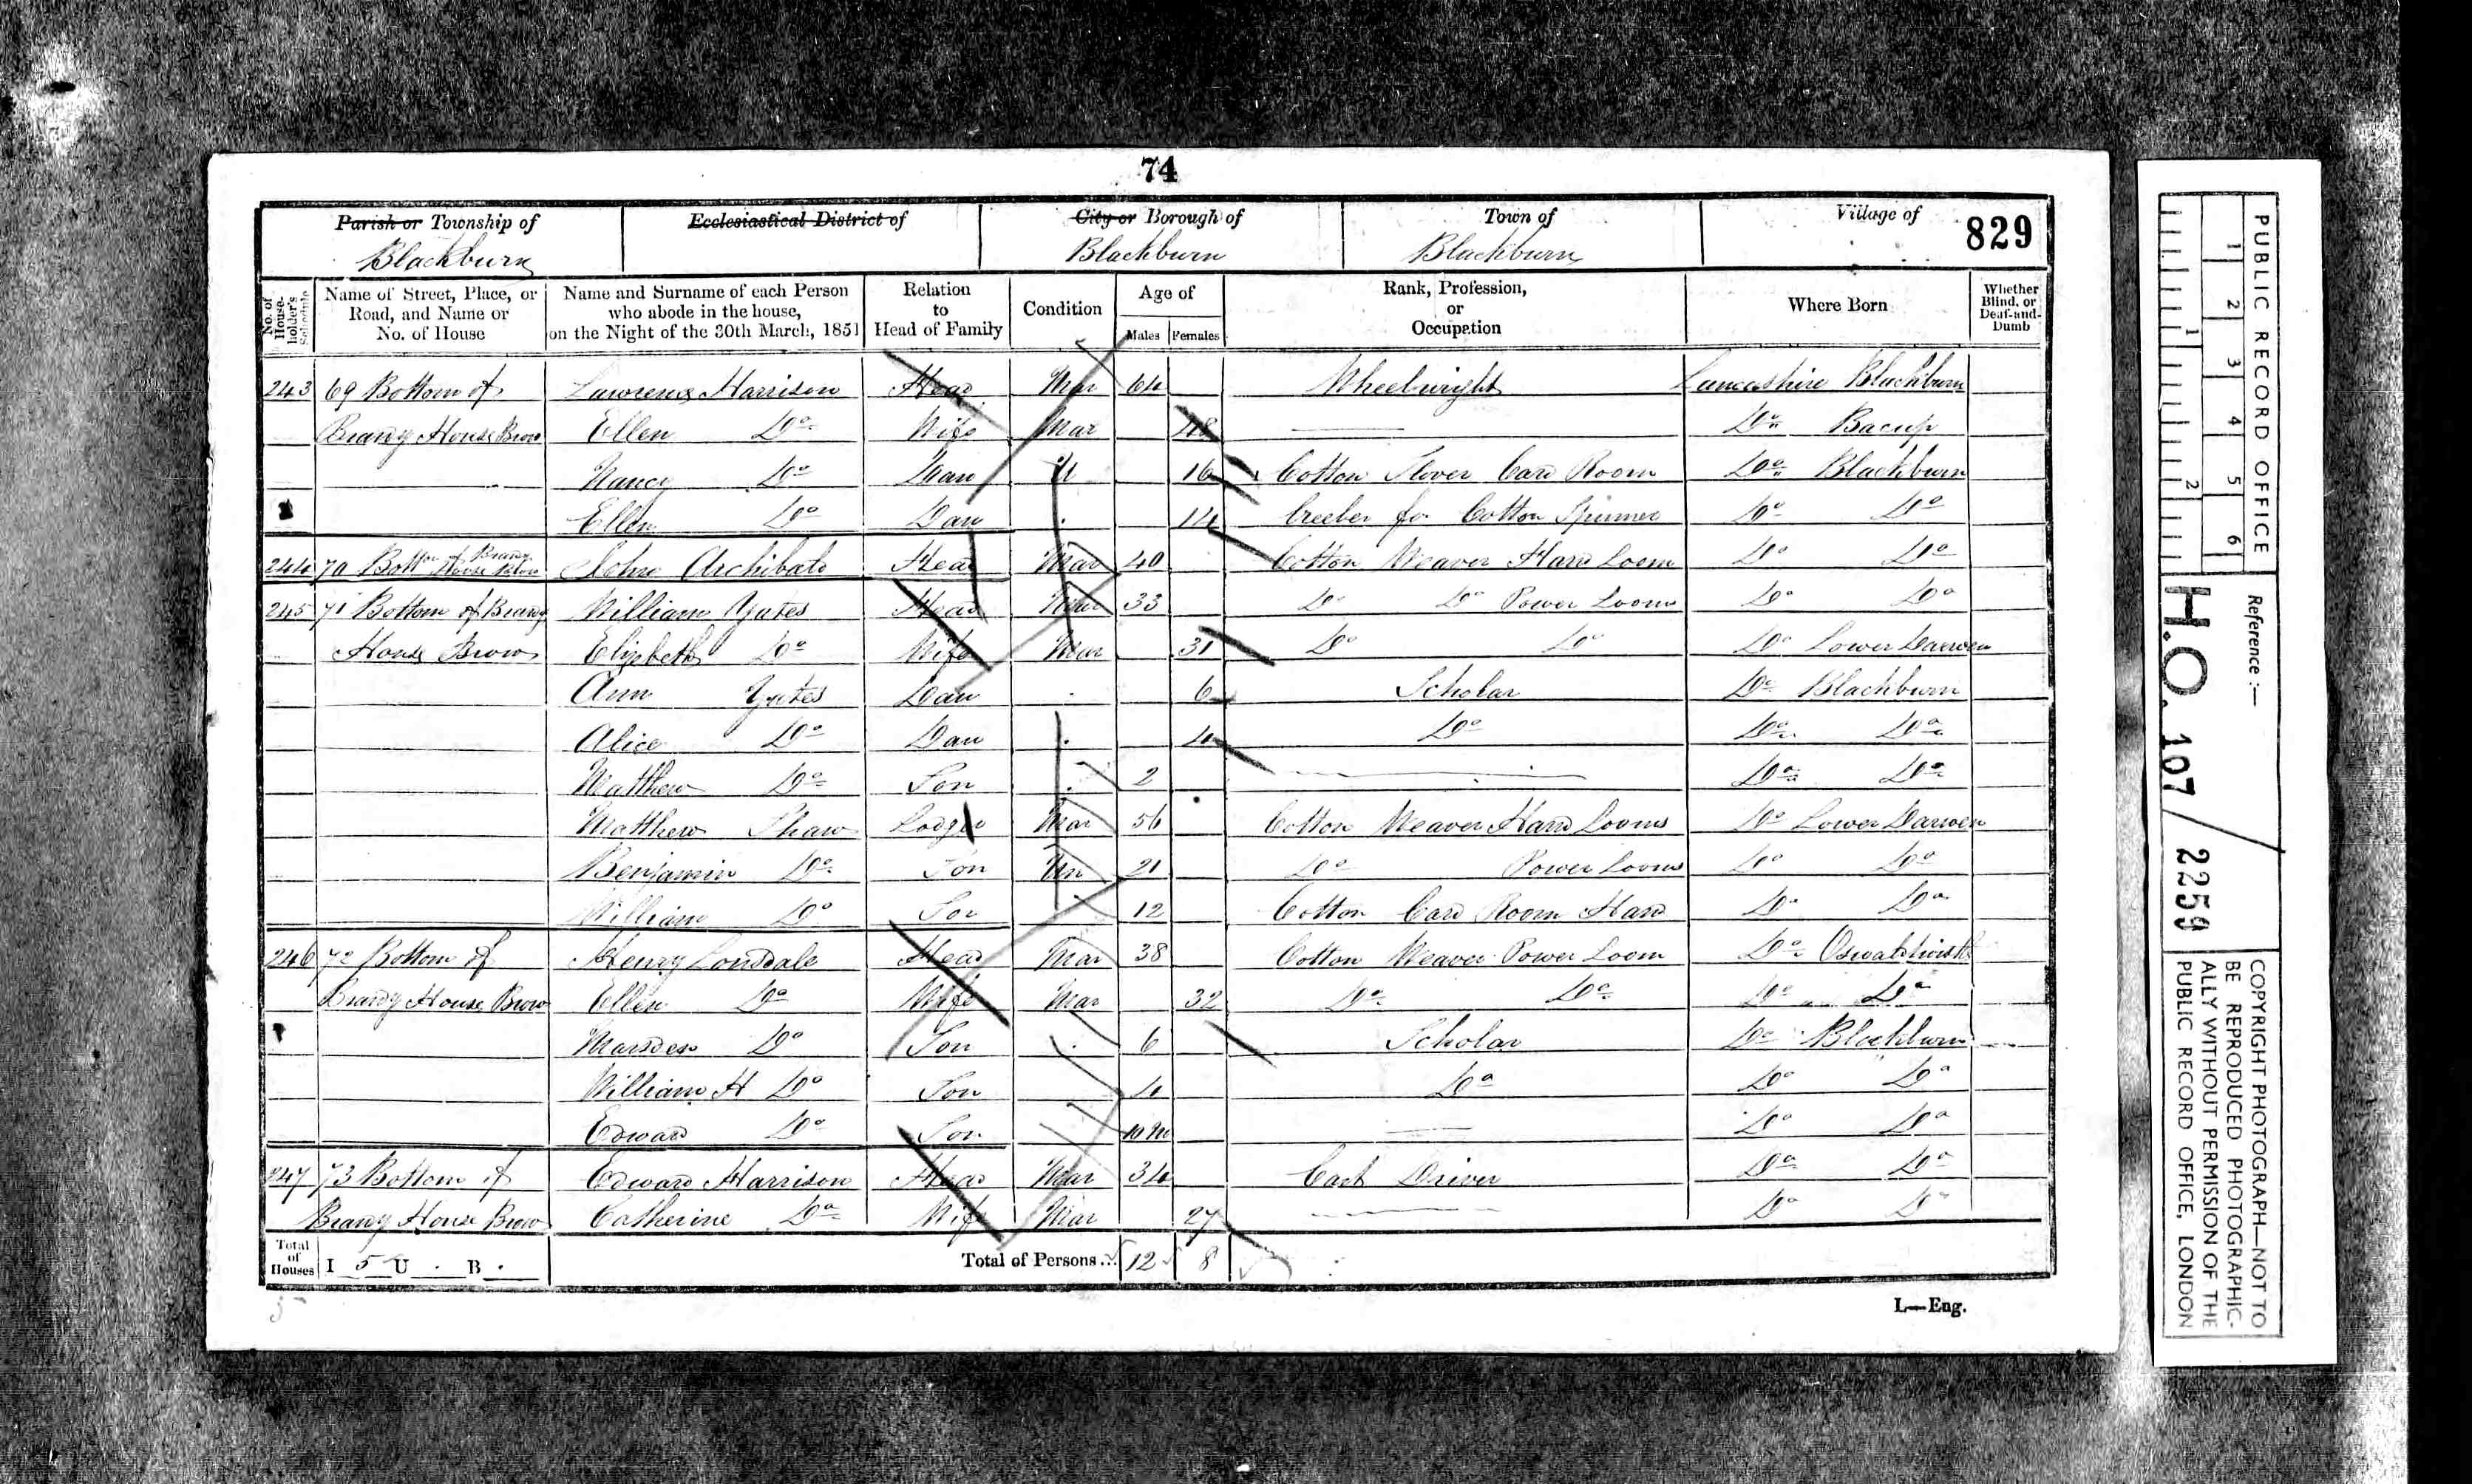 74
Parish or Township of Blackburn
Ecclesiastical District of
City or Borough of Blackburn
Town of Blackburn
Village of
829
No. of House-holder's Schedule
Name of Street, Place, or Road, and Name or No. of House
Name and Surname of each Person who abode in the house, on the Night of the 30th March, 1851
Relation to Head of Family
Condition
Age of Males Females
Rank, Profession, or Occupation
Where Born
Whether Blind, or Deaf-and-Dumb
243 69 Bottom of Lawrence Harrison Head Mar 64 Wheelwright Lancashire Blackburn
House Brow Ellen Do Wife Mar 48 Do Bacup
Nancy Do Dau U 16 Cotton Card Room Do Blackburn
Ellen Do Dau 14 Creeler for Cotton Spinner Do Do
244 70 Bottm of House Brow John Archibald Head Mar 40 Cotton Weaver Hand Loom Do Do
245 71 Bottom of William Yates Head Mar 33 Do Do Power Looms Do Do
House Brow Elizabeth Do Wife Mar 31 Do Do Do Lower Darwen
Ann Yates Dau 6 Scholar Do Blackburn
Alice Do Dau 4 Do Do Do
Matthew Do Son 2 Do Do
Matthew Shaw Lodger Mar 56 Cotton Weaver Hand Looms Do Lower Darwen
Benjamin Do Son Un 21 Do Power Looms Do Do
William Do Son 12 Cotton Card Room Hand Do Do
246 72 Bottom of Henry Lonsdale Head Mar 38 Cotton Weaver Power Loom Do Oswaldtwistle
House Brow Ellen Do Wife Mar 32 Do Do Do Do
Marsden Do Son 6 Scholar Do Blackburn
William H Do Son 4 Do Do Do
Edward Do Son 10 m Do Do
247 73 Bottom of Edward Harrison Head Mar 34 Cart Driver Do Do
House Brow Catherine Do Wife Mar 27 Do Do
Total of Houses I 5 U . B .
Total of Persons... 12 8
L—Eng.
PUBLIC RECORD OFFICE
1 2 3 4 5 6
1 2
Reference :—
H.O. 107/2259
COPYRIGHT PHOTOGRAPH—NOT TO BE REPRODUCED PHOTOGRAPHIC-
ALLY WITHOUT PERMISSION OF THE
PUBLIC RECORD OFFICE, LONDON